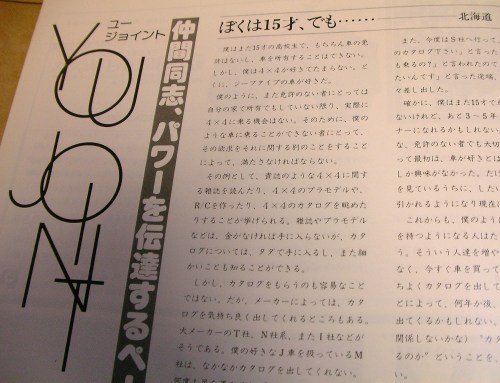 YOU JOINT
ユー
ジョイント
仲間同志、パワーを伝達するペー
ぼくは15才、でも……
北海道
僕はまだ15才の高校生で、もちろん車の免
許はないし、車を所有することはできない。
しかし、僕は4×4が好きでたまらない。と
くに、ジープタイプの車が好きだ。
僕のように、まだ免許のない者にとっては
自分の家で所有でもしていない限り、実際に
4×4に乗る機会はない。そのために、僕の
ような車に乗ることができない者にとって、
その欲求をそれに関する別のことをすること
によって、満たさなければならない。
その例として、貴誌のような4×4に関す
る雑誌を読んだり、4×4のプラモデルや、
R/Cを作ったり、4×4のカタログを眺めた
りすることが挙げられる。雑誌やプラモデル
などは、金がなければ手に入らないが、カタ
ログについては、タダで手に入るし、また細
かいことも知ることができる。
しかし、カタログをもらうのも容易なこと
ではない。だが、メーカーによっては、カタ
ログを気持ち良く出してくれるところもある。
大メーカーのT社、N社系、またI社などが
そうである。僕の好きなJ車を扱っているM
社は、なかなかカタログを出してくれない。
また、今度はS社へ行って、
のカタログ下さい」と言った
も乗るの？」と言われたので
たいんです」と言った途端、
々差し出した。
確かに、僕はまだ15才で
ないけれど、あと3～5年
ナーになれるかもしれない
な、免許のない者でも大切
って最初は、車が好きとは
しか興味がなかった。だけ
を見ているうちに、しだい
引かれるようになり現在に
これからも、僕のように
を持つようになる人はた
う。そういう人達を増や
なく、今すぐ車を買って
ちよくカタログを出して
とによって、何年か後、
出てくるかもしれない。
関係しないかな）"カタ
るのか"ということを、
い。